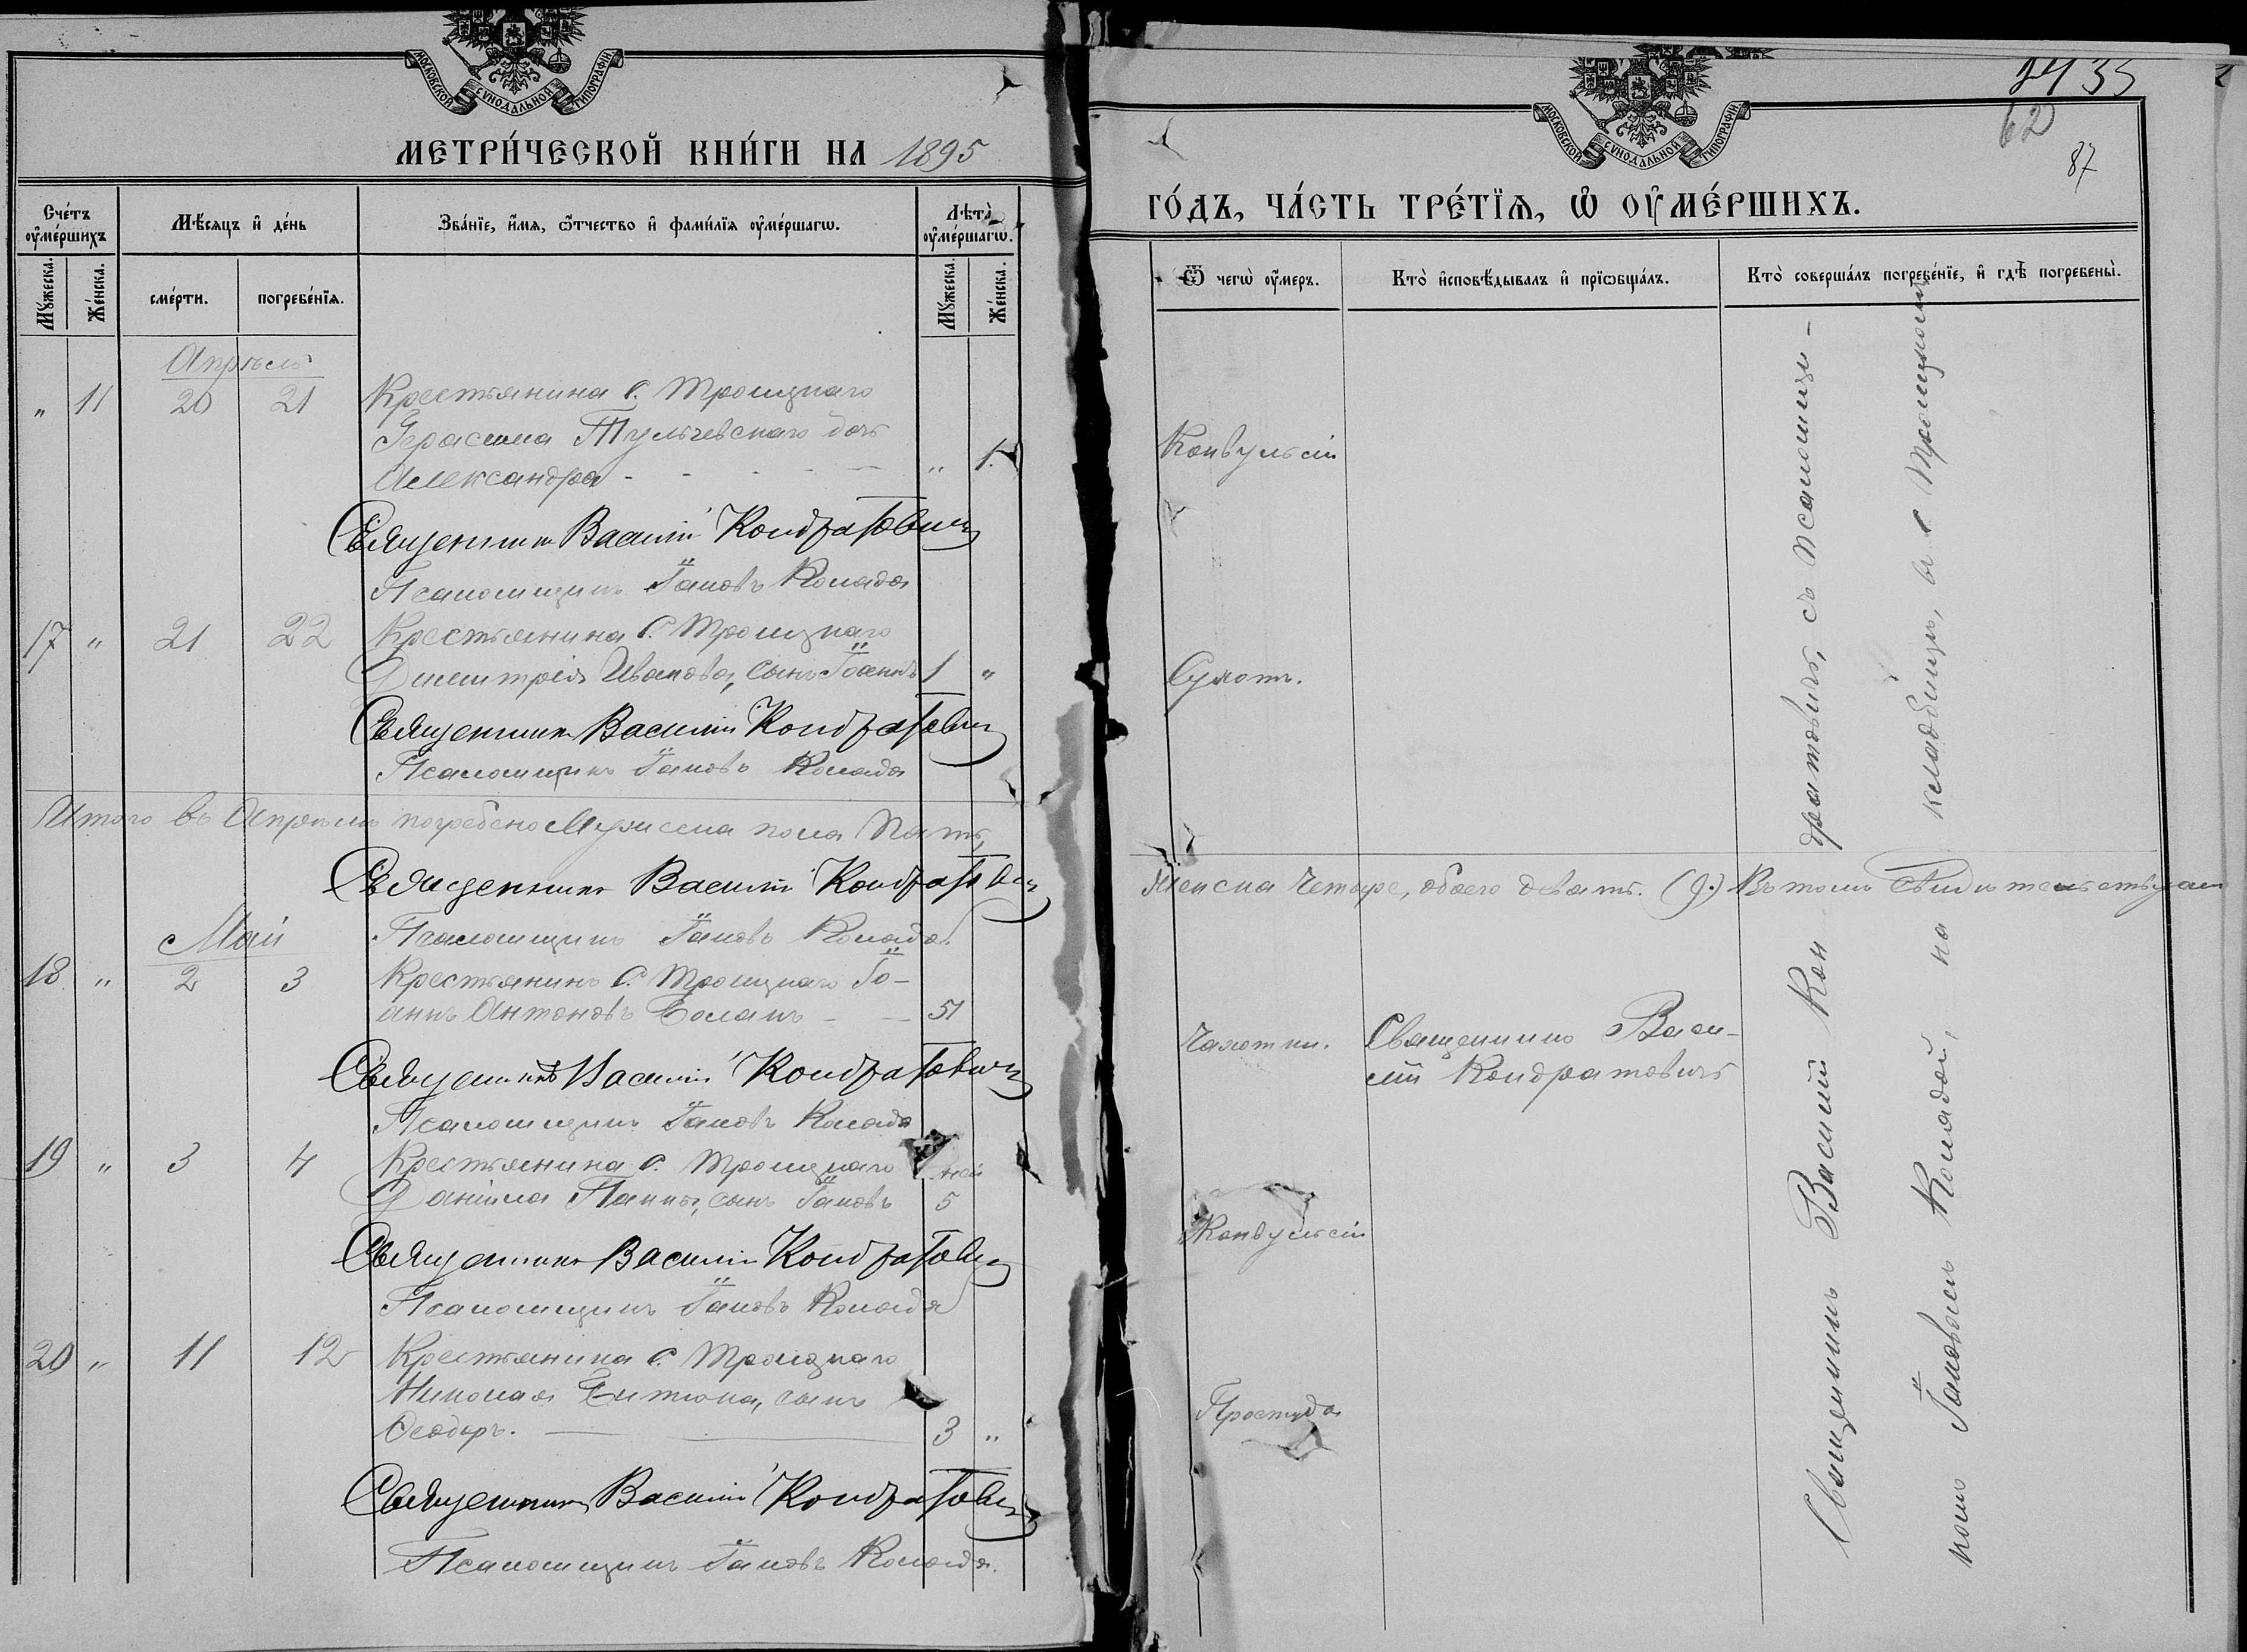 МОСКОВСКОЙ СѴНОДАЛЬНОЙ ТИПОГРАФІИ.
МЕТРИ́ЧЕСКОЙ КНИ́ГИ НА 1895
Сче́тъ оуме́ршихъ
Мѣ́сяцъ и де́нь
Зва́нїе, и́мя, ѿтчество и фами́лїя оуме́ршагѡ.
Лѣта̀ оуме́ршагѡ.
Мꙋжеска.
Же́нска.
сме́рти.
погребе́нїя.
Мꙋжеска.
Же́нска.
Апрѣль
" 11 20 21 Крестьянина с. Троицкаго
Герасима Тульчевскаго дочь
Александра - - - - " 1.
Священникъ Василій Кондратовичъ
Псаломщикъ Іаковъ Колада
17 " 21 22 Крестьянина с. Троицкаго
Димитрія Иванова, сынъ Іоаннъ 1 "
Священникъ Василій Кондратовичъ
Псаломщикъ Іаковъ Колада
Итого въ Апрѣлѣ погребено Мужеска пола Пять,
Священникъ Василій Кондратовичъ
Псаломщикъ Іаковъ Колада.
Май
18 " 2 3 Крестьянинъ с. Троицкаго Іо-
аннъ Антоновъ - - 51
Священникъ Василій Кондратовичъ
Псаломщикъ Іаковъ Колада
19 " 3 4 Крестьянина с. Троицкаго ней
Даніила сынъ Іаковъ 5
Священникъ Василій Кондратовичъ
Псаломщикъ Іаковъ Колада
20 " 11 12 Крестьянина с. Троицкаго
Николая сынъ
Ѳеодоръ. 3 "
Священникъ Василій Кондратовичъ
Псаломщикъ Іаковъ Колада.
МОСКОВСКОЙ СѴНОДАЛЬНОЙ ТИПОГРАФІИ.
35
62
87
ГО́ДЪ, ЧА́СТЬ ТРЕ́ТЇЯ, Ѡ ОУМЕ́РШИХЪ.
Ѿ чегѡ̀ оу́меръ.
Кто̀ исповѣ́дывалъ и прїѡбща́лъ.
Кто̀ соверша́лъ погребе́нїе, и гдѣ̀ погребены̀.
Конвульсіи
Сухоть.
Женска Четыре, обоего девять. (9.) Въ томъ Свидѣтельствуемъ
Чахотки.
Священникъ Васи-
лій Кондратовичъ
Конвульсіи
Простуда
Священникъ Василій Кон
дратовичъ, съ псаломщи-
комъ Іаковомъ Коладой, на
кладбищѣ, въ с Троицкомъ